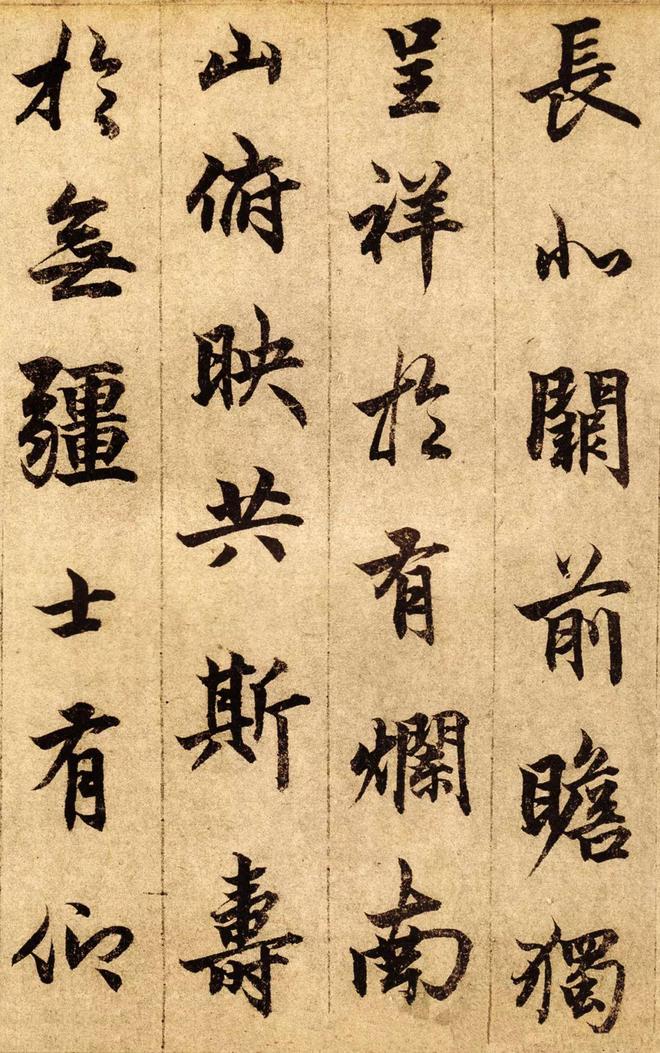 長北闕前瞻獨
呈祥於有爛南
山俯映共斯壽
於無疆士有仰